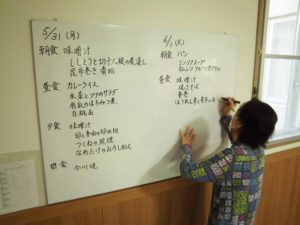 5/31 (月)
朝食 味噌汁
ししとうと切干大根の煮浸し
昆布巻き 漬物
昼食 カレーライス
水菜とツナのサラダ
南瓜のはちみつ煮
白桃缶
夕食 味噌汁
卵と春雨の炒め物
つくねの照焼
なめたけのおろし和え
間食 今川焼
6/1 (火)
朝食 パン
コンソメスープ
オムレツ フルーツカクテル
昼食 味噌汁
焼きそば
春巻
ほうれん草と